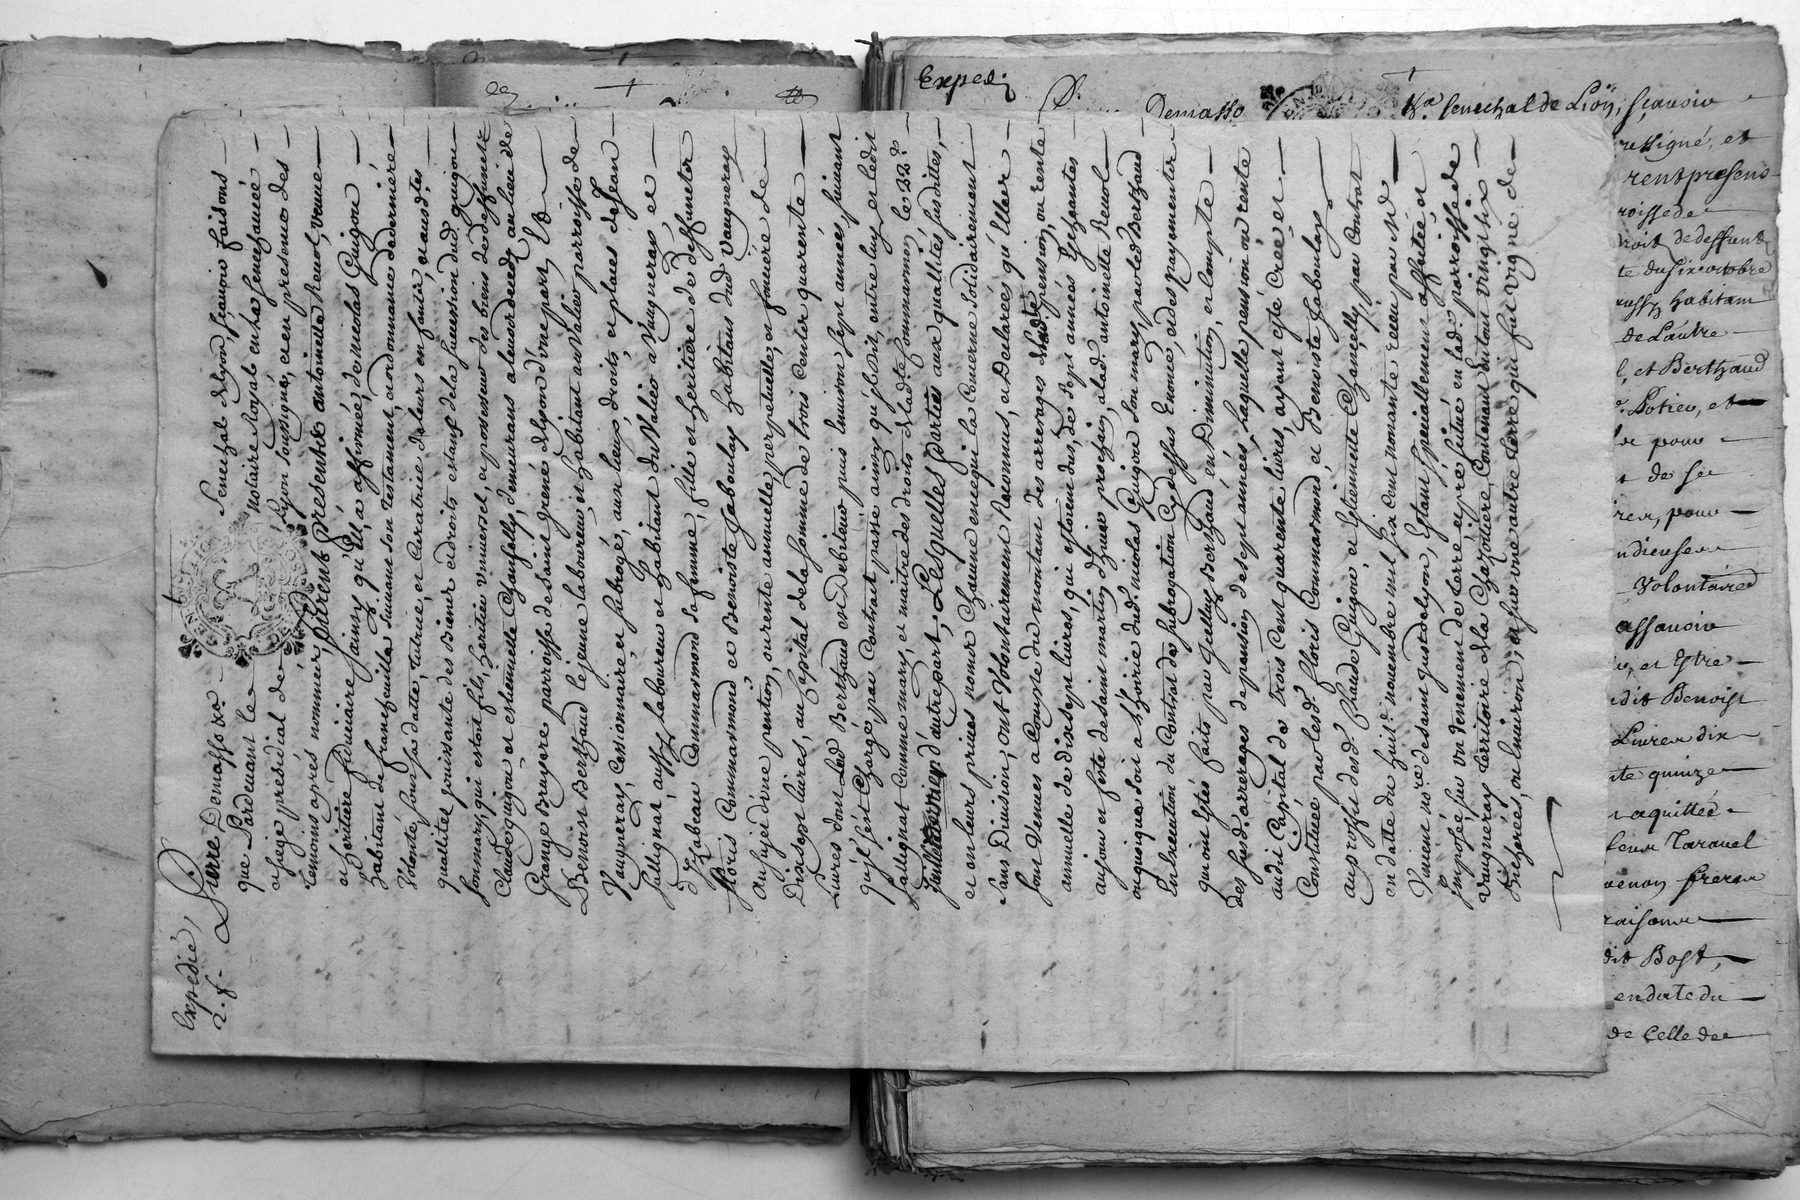 Expedié,
2. f.
Pierre Demasso &ca Senechal de Lyon, sçavoir faisons
que Pardevant le notaire Royal en la senechaucée
et siege presidial de Lyon soussigné, et en presence des
temoins aprés nommez, furent presents antoinette Revol, veuve
et heritiere fiduciaire, sainsy qu'Ell'a affirmé, de nicolas Guigou
habitant de francheville suivant son testament et ordonnance de derniere
Volonté, sous sa datte, tutrice, et Curatrice de leurs enfants, et ausdites
quallitez jouissante des Biens et droits estant de la succession dud. guigou
son mary, qui estoit fils, heritier universel, et possesseur des biens de deffuncts
Claude guigou et estiennette Chanfelly, demeurans a leur deced au lieu de
Grange bruyere parroisse de saint grené de lyon d'une part, Et
Benoist Berthaud le jeune laboureur, et habitant au Valier parroisse de
Vaugneray, Cessionnaire, et subrogé, aux lieux, droits, et places de Jean
Sallignat, aussy laboureur et habitant du Valier a Vaugneray, et
d'Yzabeau Commarmond sa femme, fille et heritiere de deffuncts
floris Commarmond et Benoiste Jaboulay habitans dud. Vaugneray
au sujet d'une pention, ou rente annuelle, perpetuelle, et fonciére de
Dixsept livres, au Capital de la somme de trois cents quarente
Livres dont Led. Berthaud est Debiteur puis Environ sept années, suivant
qu'jl s'est Chargé, par Contrait passé ainsy qu'jl a dit, entre luy, et Ledit
Sallignat Comme mary, et maitre des droits de ladte Commarmon le 22e.
d'autrepart, Lesquelles parties aux quallités susdites,
et en leurs privez noms Chacune en ce qui la Concerne solidairement
sans Division, ont Volontairement Reconnus, et Declarées qu'Elles
sont Venues a Compte du montant des arrerages de ladte pension, ou rente
annuelle de dixsept livres, qui estoient dus, de sept années Escheantes
au jour et feste de saint martin d'hiver prochain, a lad. antoinette Revol
ou quoique soit a l'hoirie dud. nicolas Guigou son mary, par led. Berthaud
En Execution du Contrat de subrogation Cy dessus Enoncé, et des payements
qui ont Estés faits par jcelluy Berthaud en Diminution, et Compte
des susd. arrerages de pention de sept années, Laquelle pension ou rente
audit Capital de trois Cent quarente livres, ayant esté créé et
Constituée par lesd. floris Commarmond, et Benoiste Jaboulay
au proffit desd. Claude Guigou, et Etiennette Chanfelly, par Contrat
en datte du huit. novembre mil six cent nonante receu par Me
Vincent nore. de saint just de lyon, Estant specialement affectée et
jmposée sur un tenement de terre, et pré situé en lad. parroisse de
Vaugneray territoire de la Chazotiere, Contenant en tout vingt six
Bicherées, ou Environ, et sur une autre terre qui fut vigne, de
Exped.
Demasso
&a Senechal de Lion, sçavoir
soussigné, et
rent presens
roisse de
roit de deffunt
te du six octobre
aussy habitant
de L'autre
l, et Berthaud
r. Potier, et
pour
de se
rer, pour
ndieuse
Volontaires
assavoir
et Estre
dit Benoist
Livres dix
te quinze
aquittée
leur Taravel
venon freres
raison
dit Bost,
en date du
de Celle de